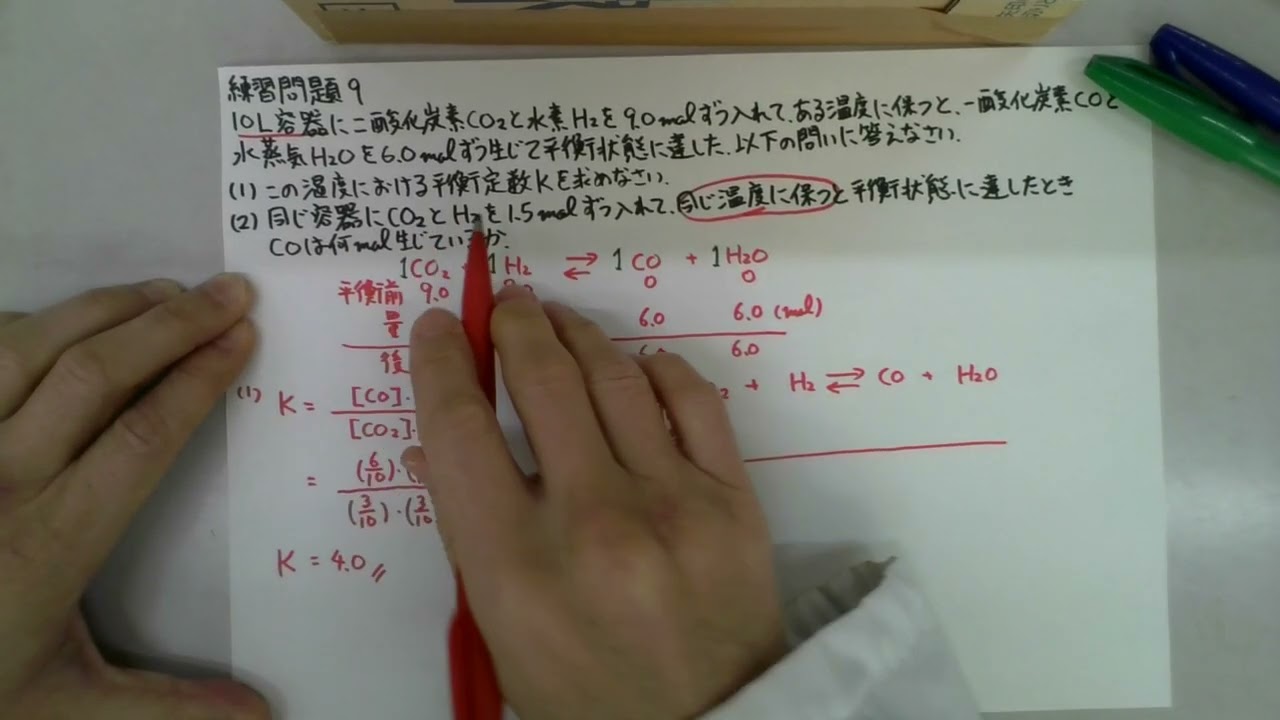 練習問題9
10L容器に二酸化炭素CO₂と水素H₂を9.0molずつ入れて、ある温度に保つと、一酸化炭素COと
水蒸気H₂Oを6.0molずつ生じて平衡状態に達した。以下の問いに答えなさい。
(1) この温度における平衡定数Kを求めなさい。
(2) 同じ容器にCO₂とH₂を1.5molずつ入れて、同じ温度に保つと平衡状態に達したとき
COは何mol生じているか。
1CO₂ 1H₂ ⇄ 1CO + 1H₂O
平衡前 9.0 0 0
量 6.0 6.0 (mol)
後 6.0
+ H₂ ⇄ CO + H₂O
(1) K = [CO]·
[CO₂]·
= (6/10)·
(3/10)·(3/10
K = 4.0